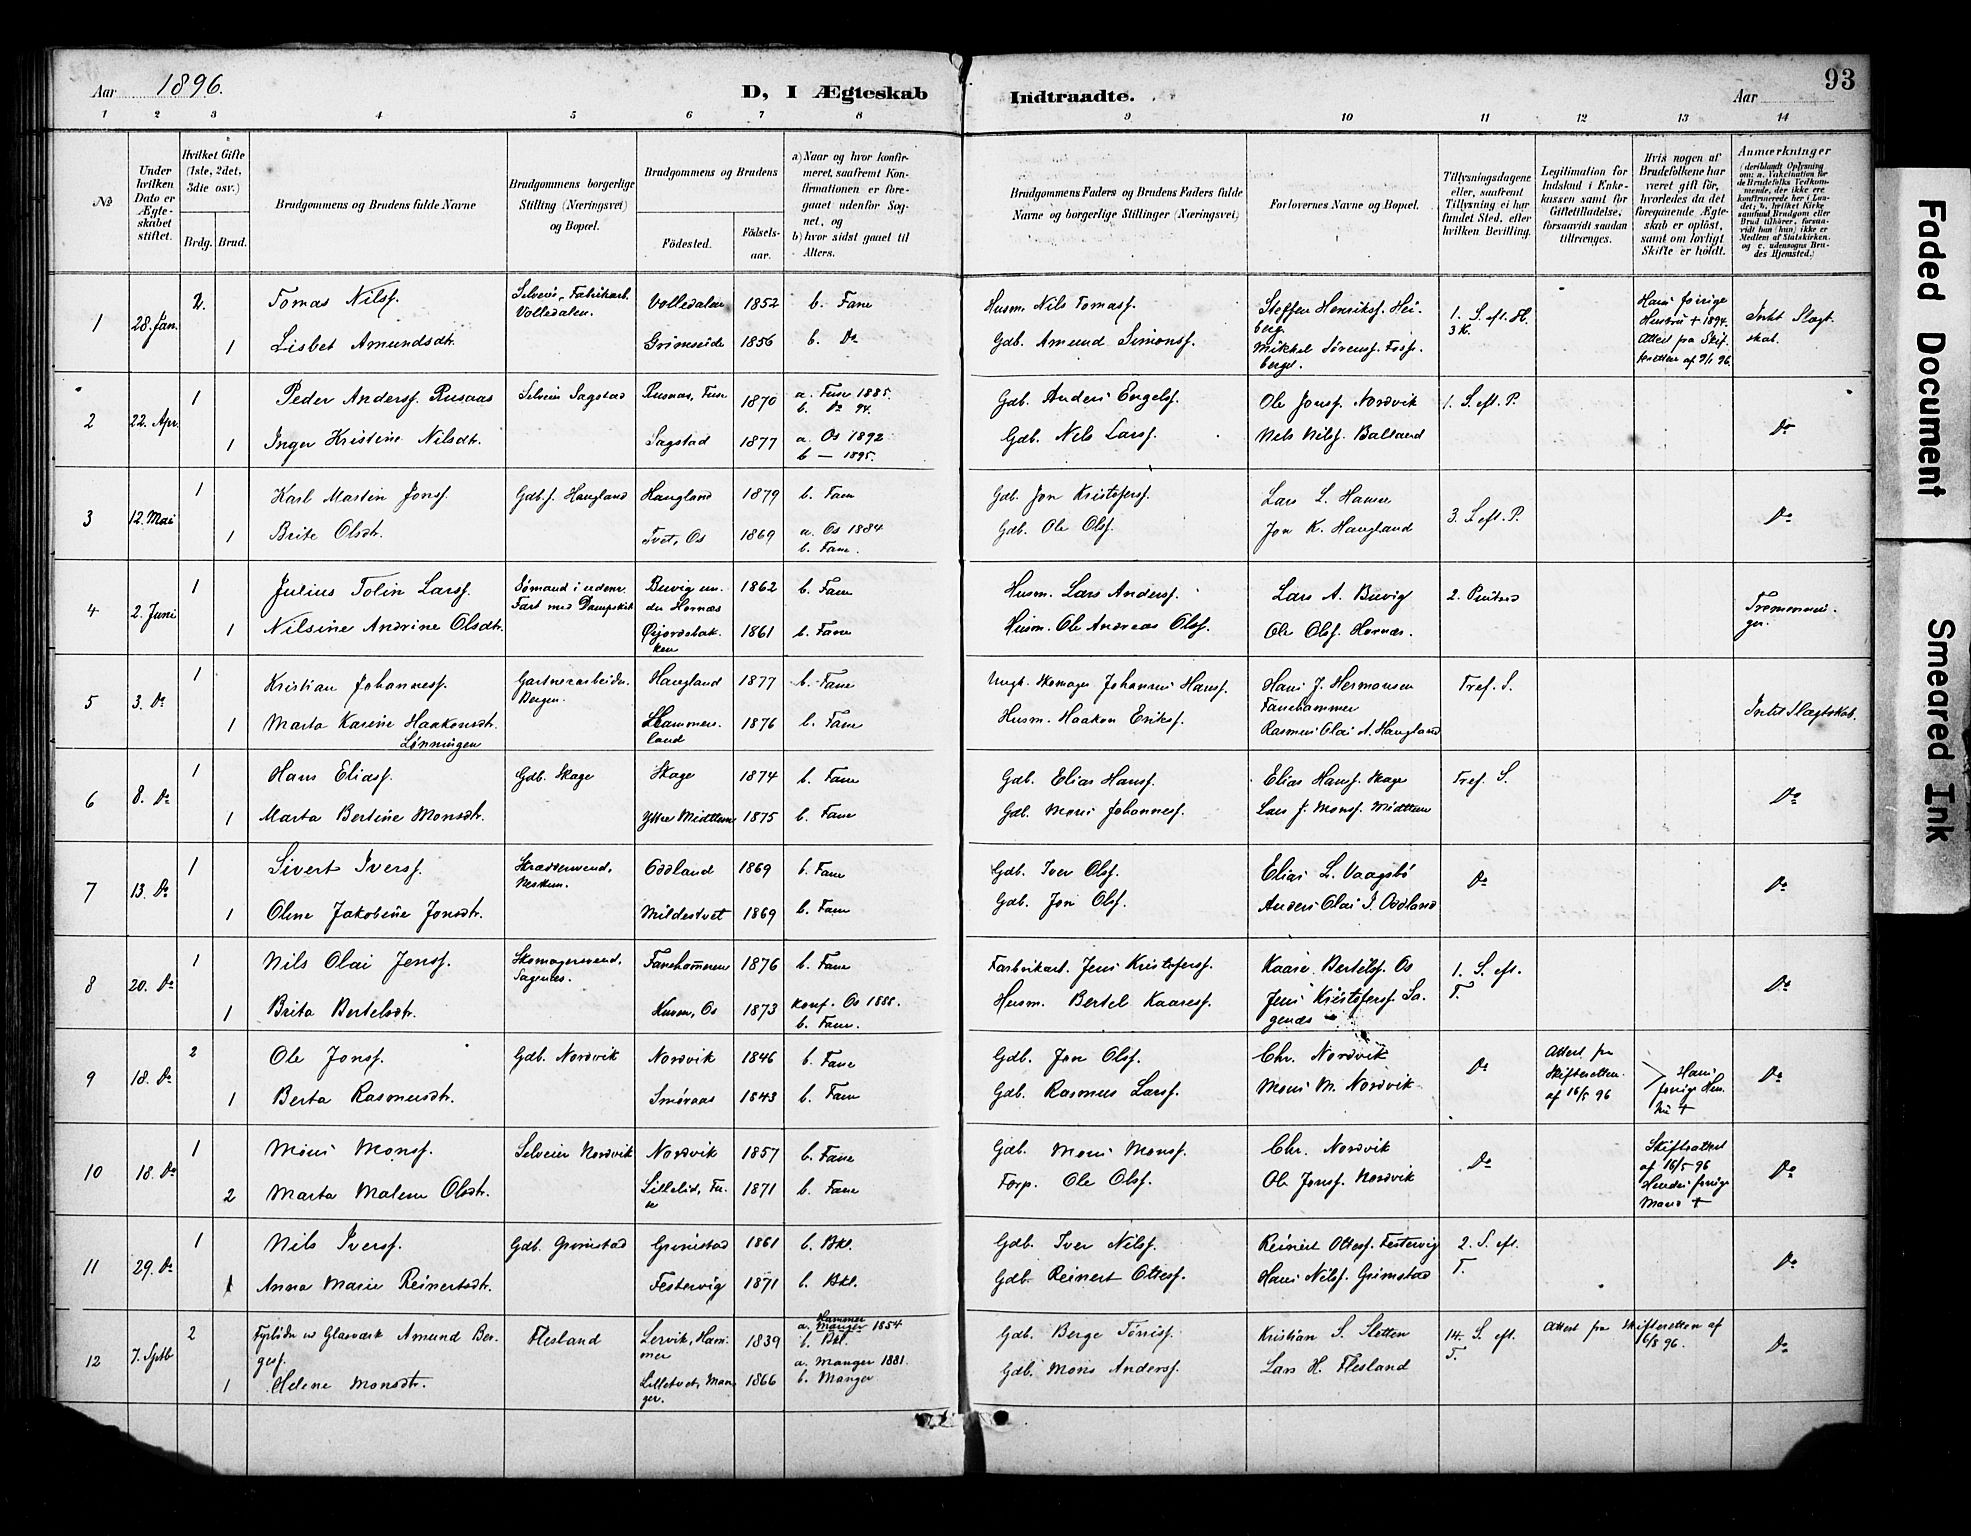 Aar 1896. D, I Ægteskab Indtraadte. Aar 93
1 2 3 4 5 6 7 8 9 10 11 12 13 14
№
Under hvilken Dato er Ægteskabet stiftet.
Hvilket Gifte (1ste, 2det, 3die osv.)
Brdg. Brud.
Brudgommens og Brudens fulde Navne
Brudgommens borgerlige Stilling (Næringsvei) og Bopæl.
Brudgommens og Brudens
Födested. Födsels-aar.
a) Naar og hvor konfirmeret, saafremt Konfirmationen er foregaaet udenfor Sognet, og
b) hvor sidst gaaet til Alters.
Brudgommens Faders og Brudens Faders fulde Navne og borgerlige Stillinger (Næringsvei)
Forlovernes Navne og Bopæl.
Tillysningsdagene eller, saafremt Tillysning ei har fundet Sted, efter hvilken Bevilling.
Legitimation for Indskud i Enkekassen samt for Giftetilladelse, forsaavidt saadan tiltrænges.
Hvis nogen af Brudefolkene har været gift før, hvorledes da det foregaaende Ægteskab er oplöst, samt om lovligt Skifte er holdt.
Anmærkninger
(deriblandt Oplysning om: a. Vakcination for de Brudefolks Vedkommende, der ikke ere konfirmerede her i Landet; b. hvilket Kirkesamfund Brudgom eller Brud tilhører, forsaavidt han (hun) ikke er Medlem af Statskirken, og c. udensogns Brudes Hjemsted.)
1 28. Jan. 2. Tomas Nilsf. Selveier, Fabrikarb. Volledalen. Volledalen 1852 b. Fane Husm. Nils Tomasf. Steffen Henriksf. Heiberg. 1. S. eft. H. 3 K. Hans forrige Hustru + 1894. Attest fra Skifteretten af 9/1 96. Intet Slægtskab.
1 Lisbet Amundsdtr. Grimseide 1856 b. Do Gdb. Amund Simonsf. Mikkel Sørensf. Fossberget.
2 22. Apr. 1 Peder Andersf. Rusaas Selveier Sagstad Rusaas, Fuse 1870 a. Fuse 1885. b. Do 94. Gdb. Anders Engelsf. Ole Jonsf. Nordvik 1. S. eft. P. Do
1 Inger Kristine Nilsdtr. Sagstad 1877 a. Os 1892 b — 1895. Gdb. Nils Larsf. Nels Nilsf. Balland
3 12. Mai 1 Karl Martin Jonsf. Gdb.s. Haugland Haugland 1879 b. Fane Gdb. Jon Kristofersf. Lars L. Hamre 3. S. eft. P. Do
1 Brite Olsdtr. Tvet, Os 1869 a. Os 1884 b. Fane. Gdb. Ole Olsf. Jon K. Haugland
4 2. Juni 1 Julius Tolin Larsf. Sømand i udenr. Fart med Dampskib Buvig under Hornæs 1862 b. Fane Husm. Lars Andersf. Lars A. Buvig 2. Pintsed Tremenninger.
1 Nilsine Andrine Olsdtr. Øijordsbakken 1861 b. Fane Husm. Ole Andreas Olsf. Ole Olsf. Hornæs.
5 3. Do 1 Kristian Johannesf. Gartnerarbeider. Bergen. Haugland 1877 b. Fane Ungk. Skomager Johannes Hansf. Hans J. Hermansen Fanehammer Tref. S. Intet Slægtskab.
1 Marta Karine Haakonsdtr. Lønningen Skammersland 1876 b. Fane Husm. Haakon Eriksf. Rasmus Olai A. Haugland
6 8. Do 1 Hans Eliasf. Gdb. Skage Skage 1874 b. Fane Gdb. Elias Hansf. Elias Hansf. Skage Tref. S. Do
1 Marta Bertine Monsdtr. Ytre Midttun 1875 b. Fane Gdb. Mons Johannesf. Lars J. Monsf. Midttun
7 13. Do 1 Sivert Iversf. Skræddersvend, Nesttun. Oddland 1869 b. Fane Gdb. Iver Olsf. Elias L. Vaagsbö Do Do
1 Oline Jakobine Jonsdtr. Mildestvet 1869 b. Fane Gdb. Jon Olsf. Anders Olai I. Oddland
8 20. Do 1 Nils Olai Jensf. Skomagersvend, Sagenes. Fanehommeren 1876 b. Fane Farbrikarb. Jens Kristofersf. Kaare Bertelsf. Os 1. S. eft. T. Do
1 Brita Bertelsdtr. Os 1873 konf. Os 1888. b. Fane. Husm. Bertel Kaaresf. Jens Kristofersf. Sagenæs
9 18. Do 2 Ole Jonsf. Gdb. Nordvik Nordvik 1846 b. Fane Gdb. Jon Olsf. Chr. Nordvik Do Attest fra Skifteretten af 16/5 96 Hans forrige Hustru + Do
1 Berta Rasmusdtr. Smøraas 1843 b. Fane Gdb. Rasmus Larsf. Mons M. Nordvik
10 18. Do 1 Mons Monsf. Selveier Nordvik Nordvik 1857 b. Fane Gdb. Mons Monsf. Chr. Nordvik Do Skifteattest af 16/5 96 Hendes forrige Mand + Do
2 Marta Malene Olsdtr. Lillelid, Fane 1871 b. Fane Forp. Ole Olsf. Ole Jonsf. Nordvik
11 29. Do 1 Nils Iversf. Gdb. Grimstad Grimstad 1861 b. Bkl. Gdb. Iver Nilsf. Reinert Ottesf. Festervig 2. S. eft. T. Do
1 Anna Marie Reinertsdtr. Festervig 1871 b. Bkl. Gdb. Reinert Ottesf. Hans Nilsf. Grimstad
12 7. Septb 2 Fyrböder ve Glasværk Amund Bergesf. Flesland Lervik, Hammer 1839 a. Hammer Manger 1854 b. Bkl. Gdb. Berge Tönnisf. Kristian S. Sletten 14. S. eft. T. Attest fra Skifteretten af 6/8 96. Do
1 Helene Monsdtr. Lilletvet, Manger. 1866 a. Manger 1881. b. Manger Gdb. Mons Andersf. Lars H. Flesland
Faded Document
Smeared Ink